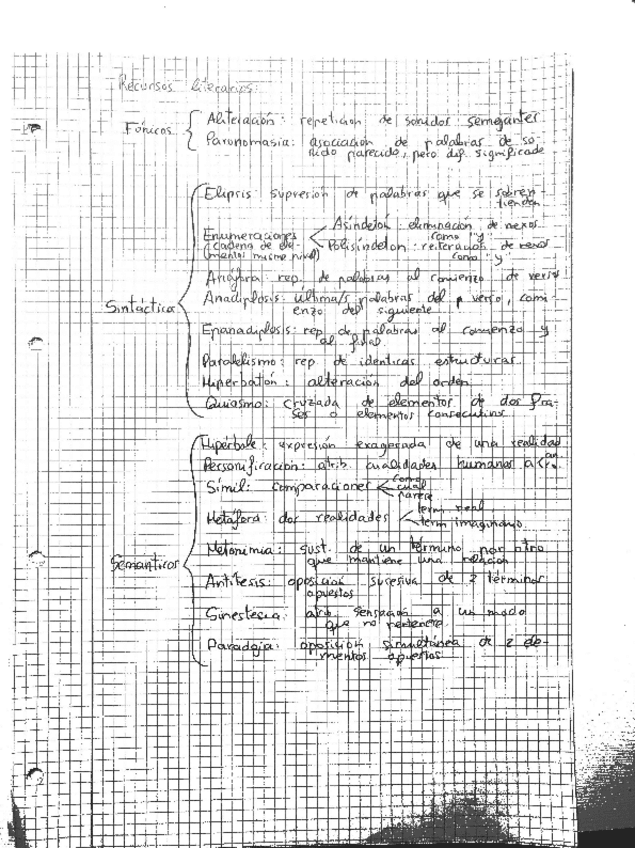 Recursos literarios:
Fónicos
Aliteración: repetición de sonidos semejantes
Paronomasia: asociación de palabras de so-
nido parecido, pero dif. significado
Sintácticos
Elipsis: supresión de palabras que se sobren-
tienden
Enumeraciones
(cadena de ele-
mentos mismo nivel)
Asíndeton: eliminación de nexos
como "y"
Polisíndeton: reiteración de nexos
como "y"
Anáfora: rep. de palabras al comienzo de verso
Anadiplosis: última/s palabras del verso, comi-
enzo del siguiente
Epanadiplosis: rep de palabras al comienzo y
al final
Paralelismo: rep. de identicas estructuras
Hiperbatón: alteración del orden
Quiasmo: cruzada de elementos de dos fra-
ses o elementos consecutivos
Semánticos
Hipérbole: expresión exagerada de una realidad
Personificación: atrib. cualidades humanas a
Símil: comparaciones
como
cual
parece
Metáfora: dos realidades
term real
term imaginario
Metonimia: sust. de un término por otro
que mantiene una relación
Antítesis: oposición sucesiva de 2 términos
opuestos
Sinestesia: atrib. sensación a un modo
que no pertenece
Paradoja: oposición simultánea de 2 ele-
mentos opuestos